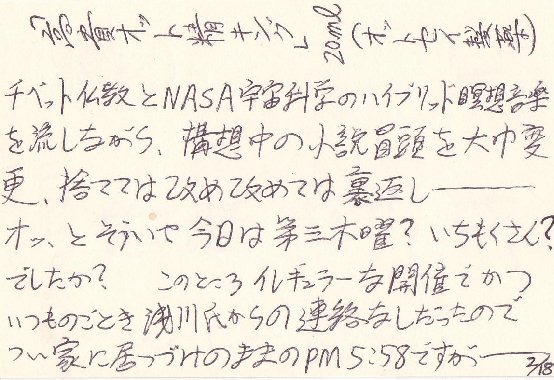 高貴オットセイ精キング」 20ml (オットセイ製薬)
チベット仏教とNASA宇宙科学のハイブリッド瞑想音楽
を流しながら、構想中の小説冒頭を大巾変
更、捨てては改め改めては裏返し———
オッ、とそういや今日は第三木曜? いちもくさん?
でしたか? このところイレギュラーな開催でかつ
いつものごとき浅川氏からの連絡なしだったので
つい家に居つづけのままのPM5:58ですが—— 2/18